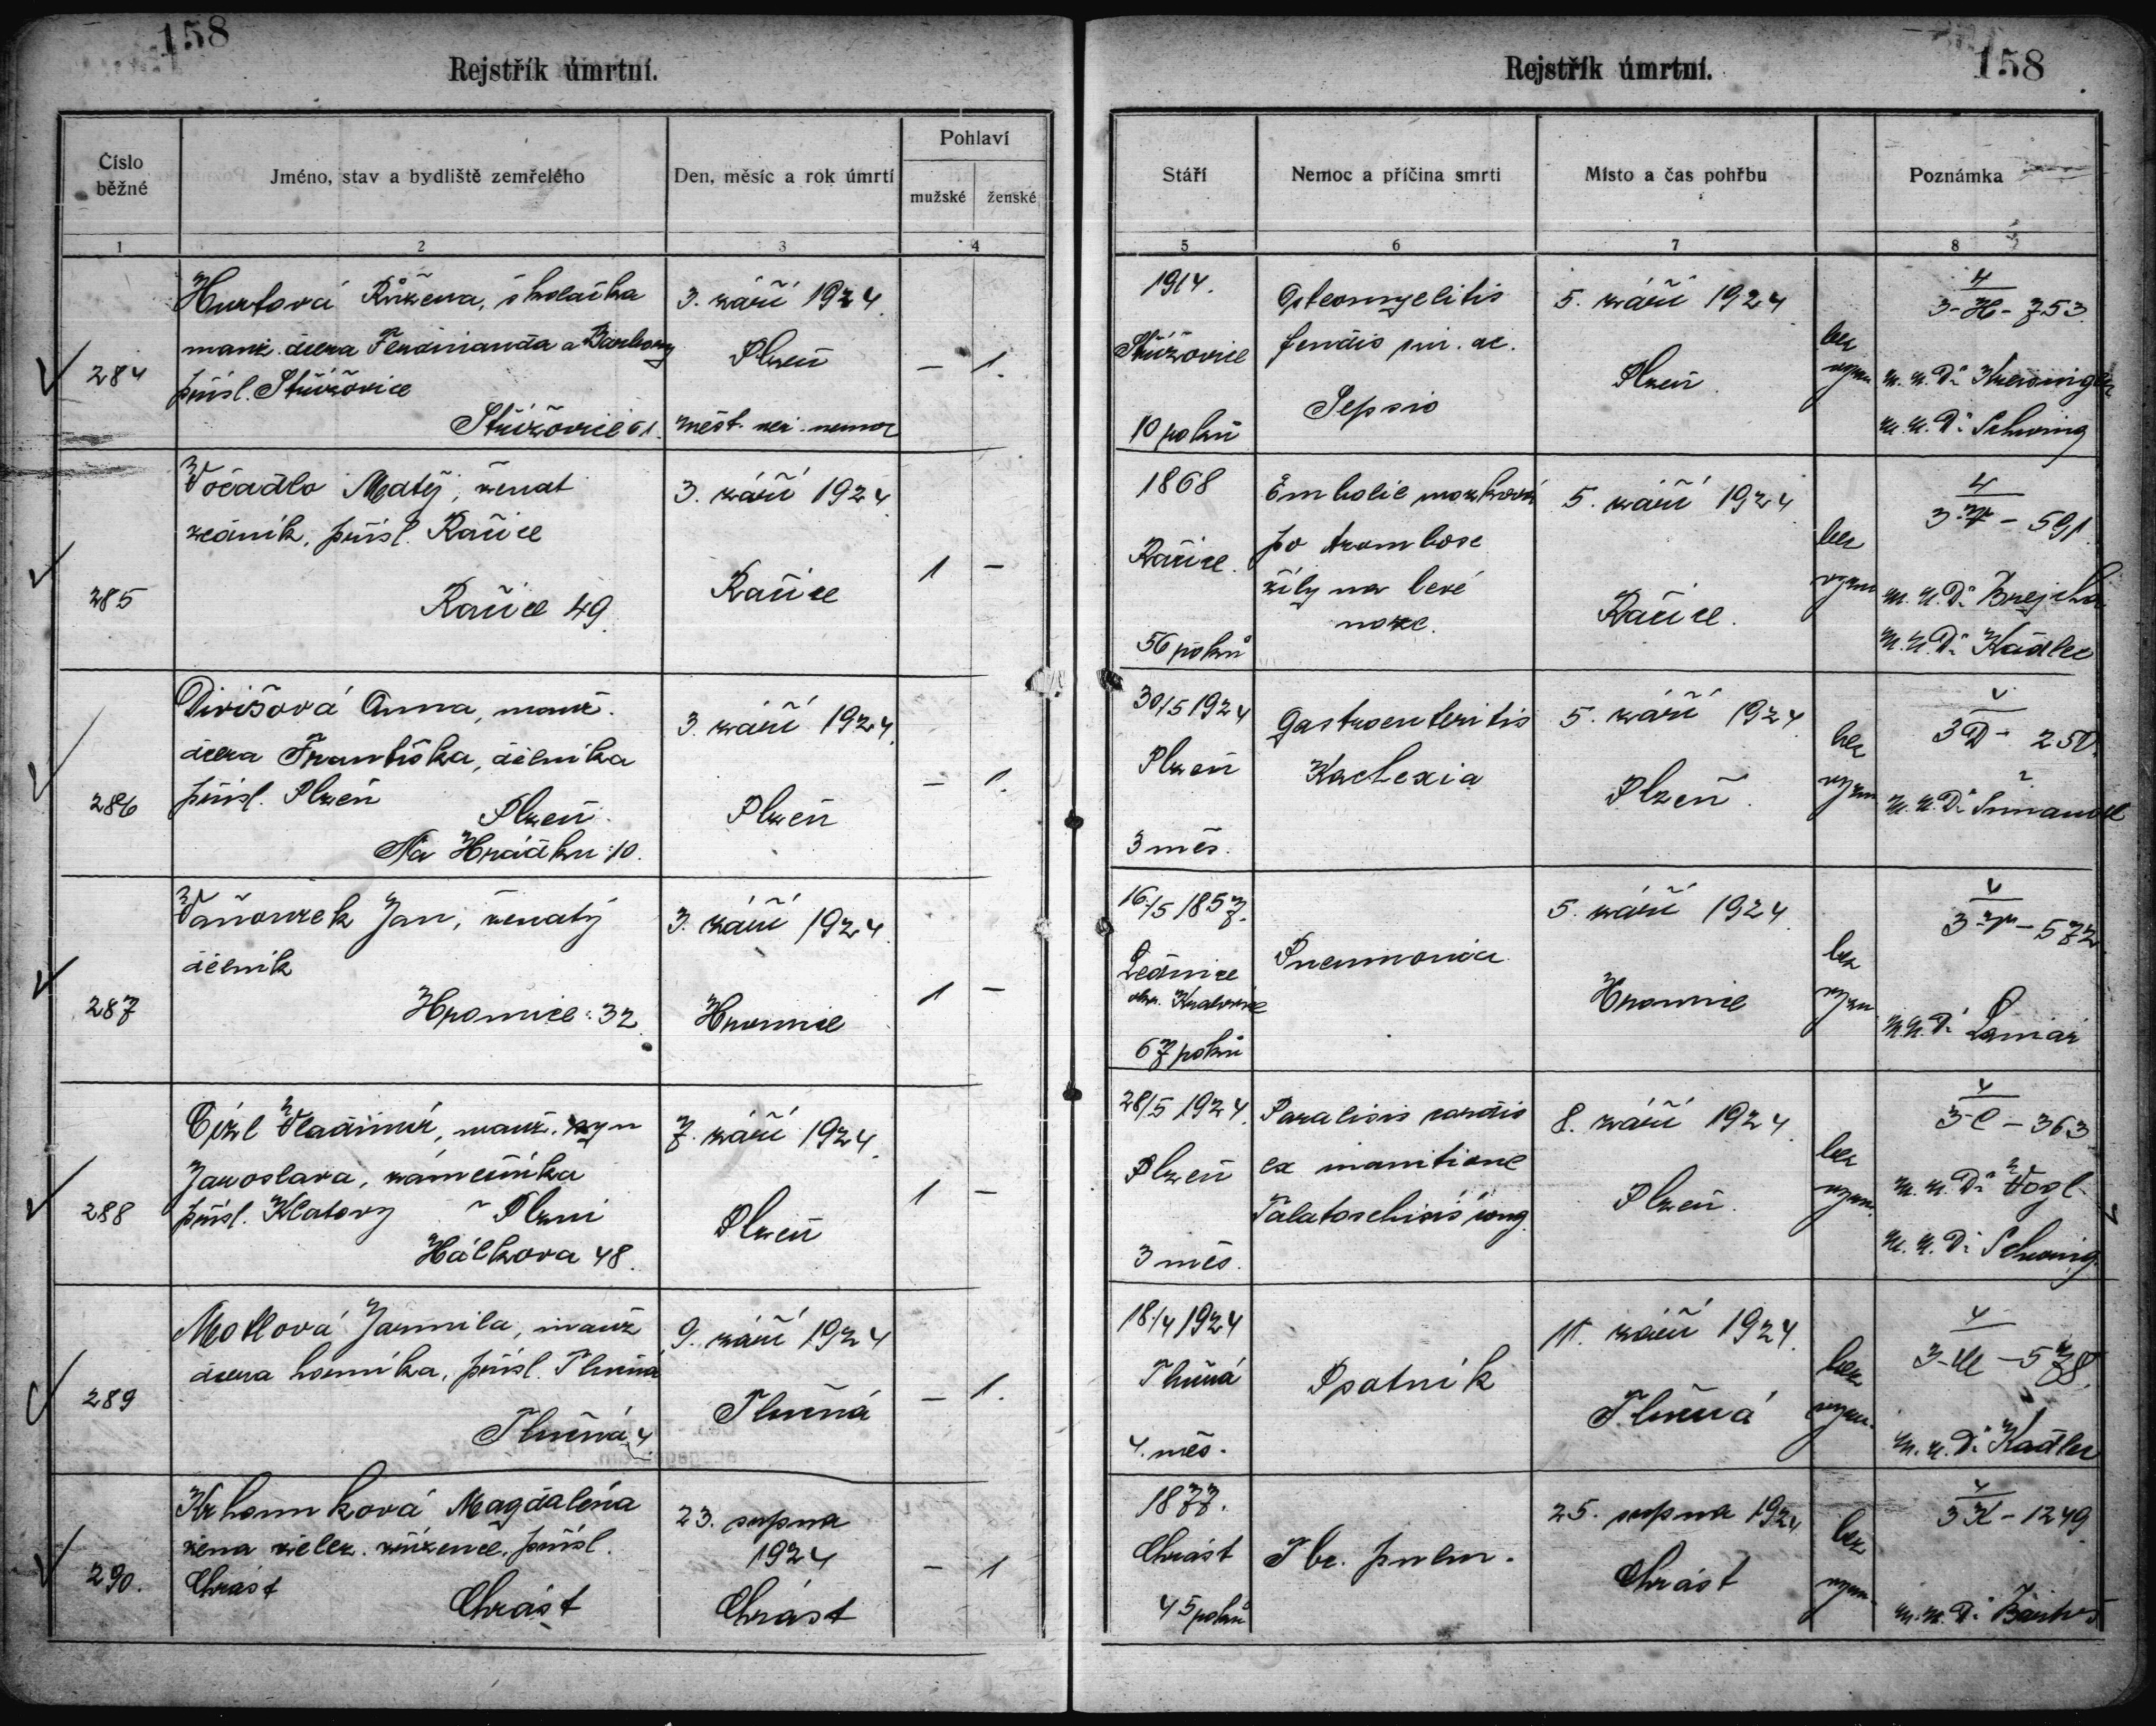 158
Rejstřík úmrtní.
Číslo běžné
Jméno, stav a bydliště zemřelého
Den, měsíc a rok úmrtí
Pohlaví
mužské
ženské
1
2
3
4
284
Hurtová Růžena, školačka
manž. dcera Ferdinanda a Barbory
přísl. Střížovice
Střížovice 61.
3. září 1924.
Plzeň
měst. nemoc
– 1.
285
Vočadlo Matěj, ženat
zedník, přísl. Rařice
Rařice 49.
3. září 1924.
Rařice
1 –
286
Divišová Anna, manž.
dcera Františka, dělníka
přísl. Plzeň
Plzeň.
Na Hrádku 10.
3. září 1924.
Plzeň
– 1.
287
Váňourek Jan, ženatý
dělník
Hromice 32.
3. září 1924.
Hromice
1 –
288
Cízl Vladimír, manž. syn
Jaroslava, zámečníka
přísl. Klatovy v Plzni
Hálkova 48.
7. září 1924.
Plzeň
1 –
289
Motlová Jarmila, manž
dcera horníka, přísl. Tlučná
Tlučná 4
9. září 1924
Tlučná
– 1.
290.
Magdaléna
žena želez. zřízence, přísl.
Chrást
Chrást
23. srpna
1924
Chrást
– 1
158
Rejstřík úmrtní.
Stáří
Nemoc a příčina smrti
Místo a čas pohřbu
Poznámka
5
6
7
8
1914.
Střížovice
10 roků
Osteomyelitis
Sepsis
5. září 1924
Plzeň.
bez
význ.
4
3-H-753.
M.U.Dr. Schwing
1868
Rařice.
56 roků
Embolie mozková
po trombose
žíly na levé
noze.
5. září 1924
Rařice.
bez
význ.
4
3-V-591.
M.U.Dr. Brejcha
M.U.Dr. Kádlec
30/5 1924
Plzeň
3 měs.
Gastroenteritis
Kachexia
5. září 1924.
Plzeň.
bez
význ.
3D-250.
M.U.Dr.
16/5 1857.
Lednice
okr. Kralovice
67 roků
Pneumonia
5. září 1924.
Hromice
bez
význ.
3-V-572.
M.U.Dr.
28/5 1924.
Plzeň
3 měs.
Paralisis cordis
ex inanitione
Palatoschisis cong.
8. září 1924.
Plzeň.
bez
význ.
3-C-363
M.U.Dr. Vogl
M.U.Dr. Schwing
18/4 1924
Tlučná
4. měs.
Psotník
11. září 1924.
Tlučná
bez
význ.
3-M-578.
M.U.Dr. Kádlec
1877.
Chrást
45 roků
Tbc. pulm.
25. srpna 1924
Chrást
bez
význ.
3K-1249
M.U.Dr.